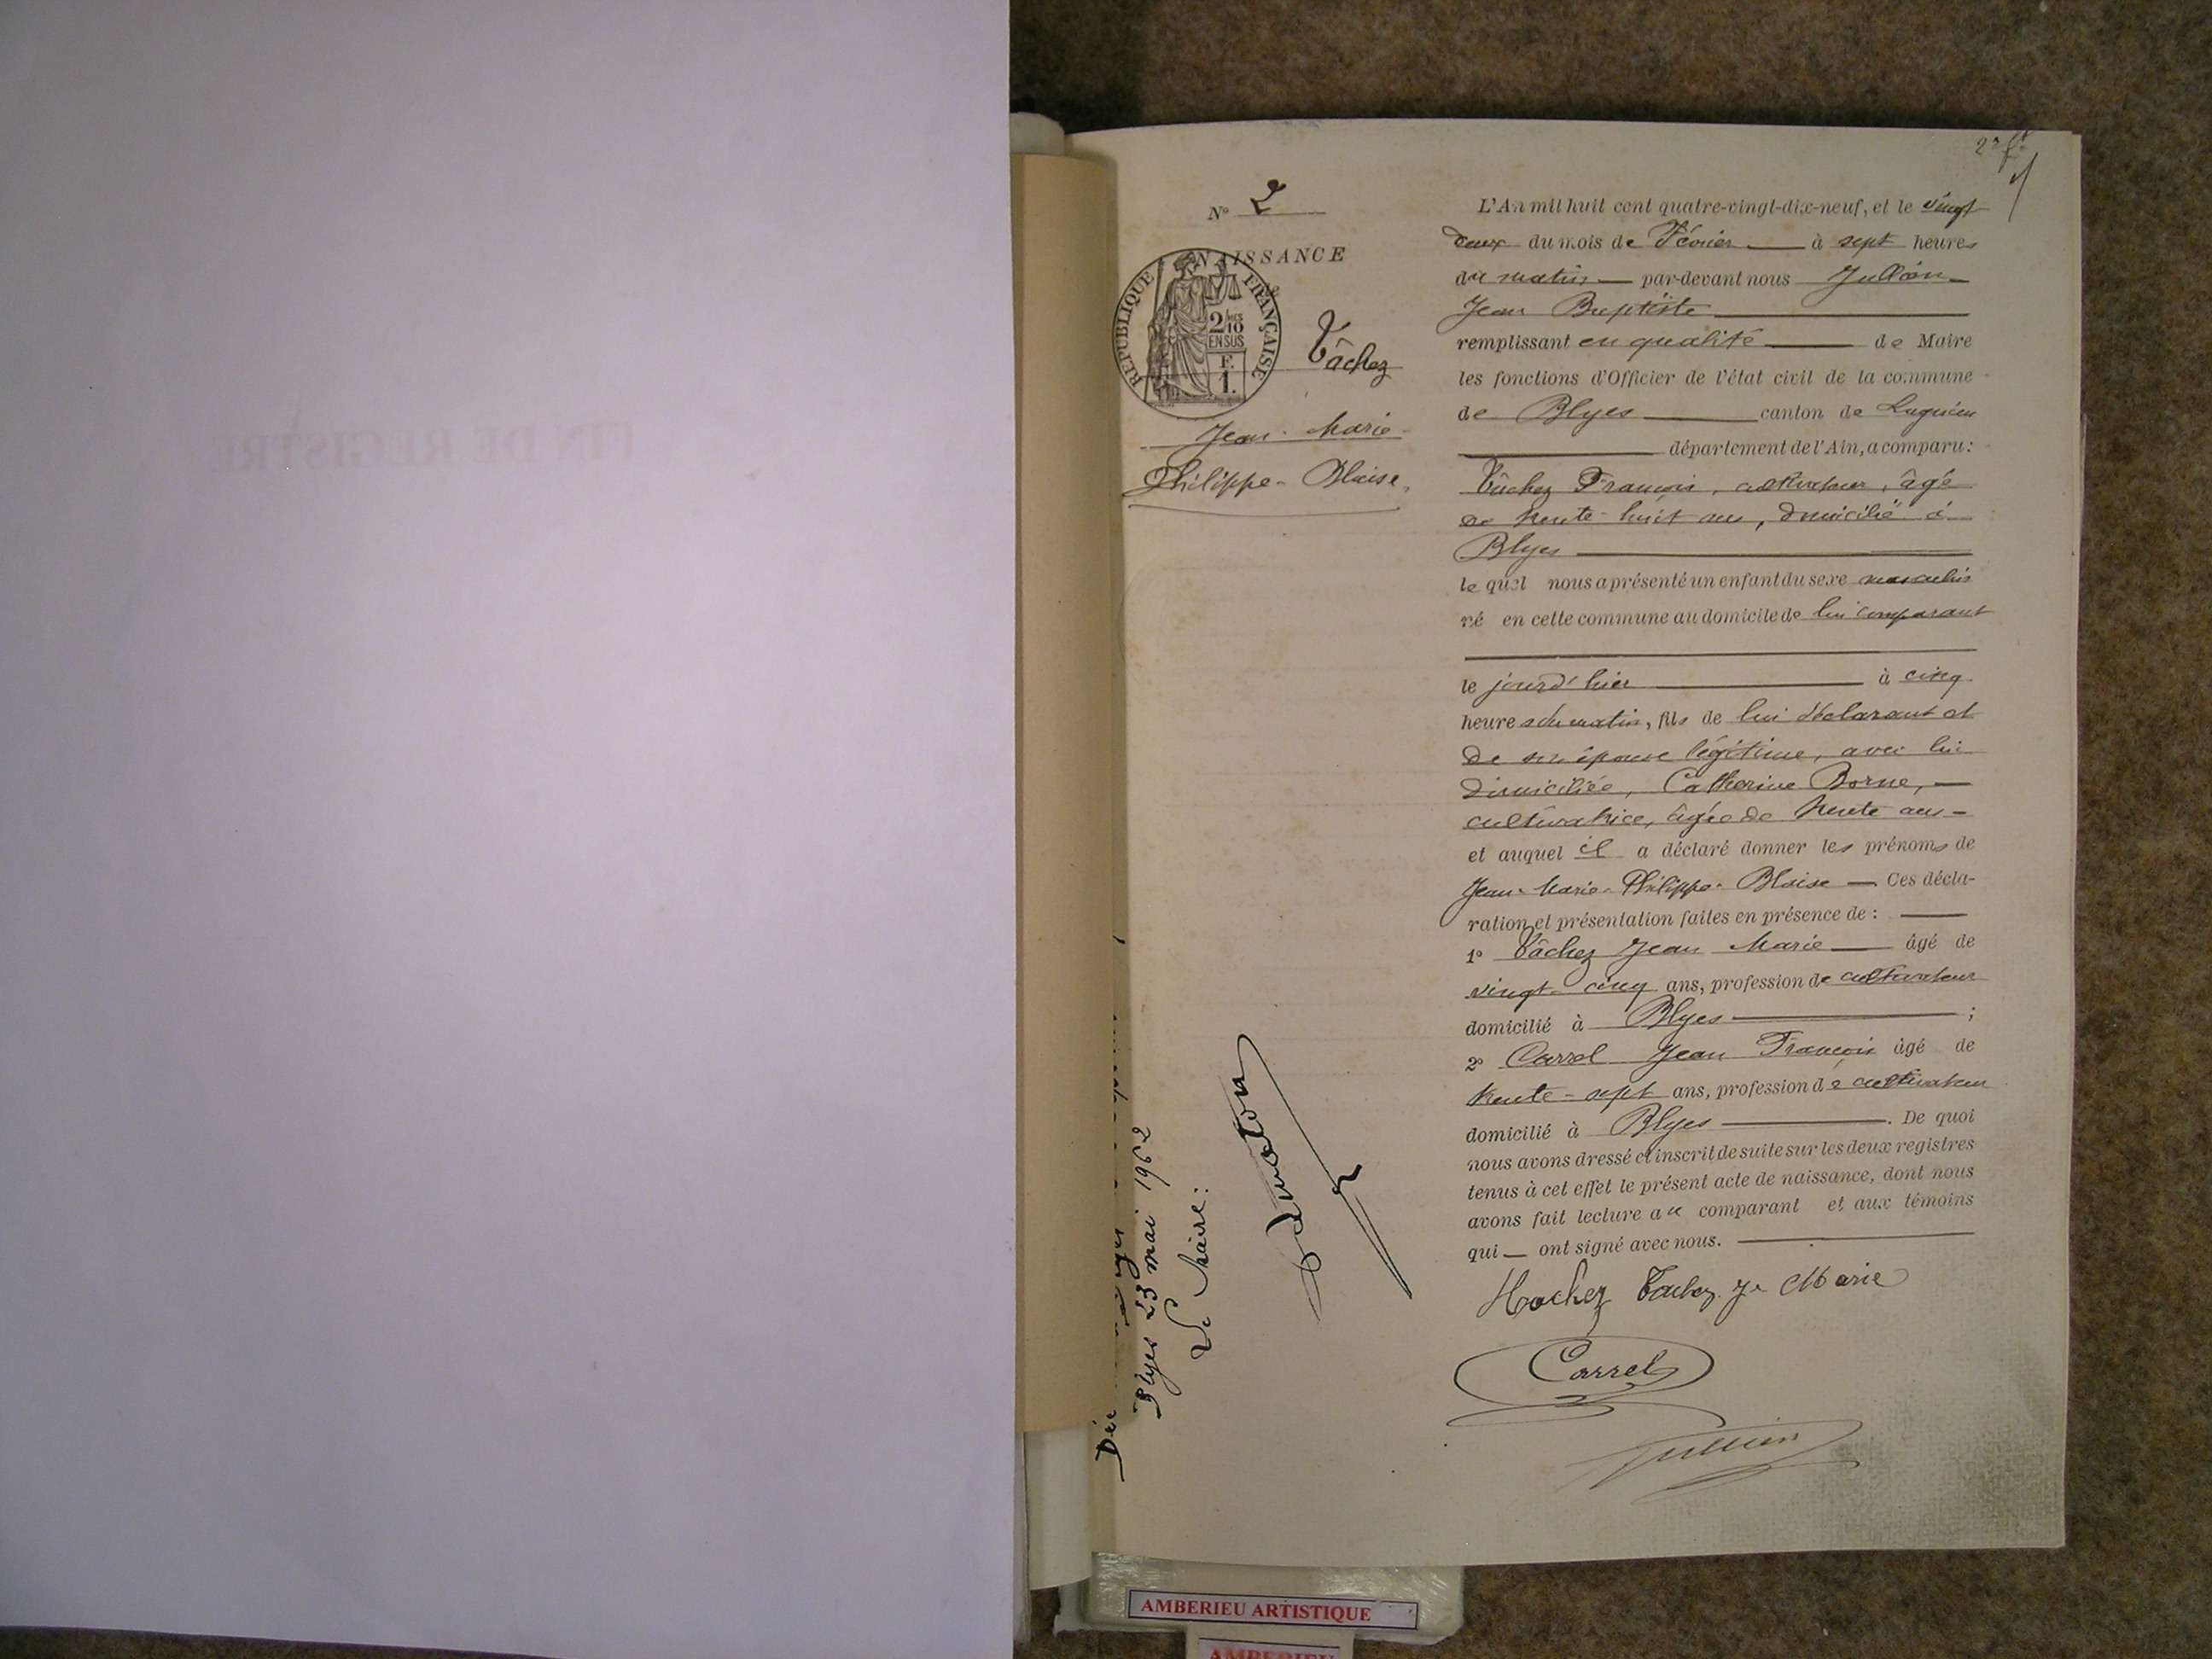 FIN DE REGISTRE
N° 2
NAISSANCE
REPUBLIQUE FRANÇAISE
2/10
EN SUS
F.
1.
Tâchez
Jean-Marie-
Philippe-Blaise.
Blyes 23 mai 1962
Le Maire:
2e
L'An mil huit cent quatre-vingt-dix-neuf, et le vingt
deux du mois de Février à sept heures
du matin par-devant nous Jullien
Jean Baptiste
remplissant en qualité de Maire
les fonctions d'Officier de l'état civil de la commune
de Blyes canton de Lagnieu
département de l'Ain, a comparu:
Tâchez François, cultivateur, âgé
de trente-huit ans, domicilié à
Blyes
lequel nous a présenté un enfant du sexe masculin
né en cette commune au domicile de lui comparant
le jourd'hier à cinq
heures du matin, fils de lui déclarant et
de son épouse légitime, avec lui
domiciliée, Catherine Borne,
cultivatrice, âgée de trente ans
et auquel il a déclaré donner les prénoms de
Jean-Marie-Philippe-Blaise Ces décla-
ration et présentation faites en présence de:
1° Tâchez Jean Marie âgé de
vingt-cinq ans, profession de cultivateur
domicilié à Blyes ;
2° Carrel Jean François âgé de
trente-sept ans, profession de cultivateur
domicilié à Blyes . De quoi
nous avons dressé et inscrit de suite sur les deux registres
tenus à cet effet le présent acte de naissance, dont nous
avons fait lecture au comparant et aux témoins
qui ont signé avec nous.
Tachez Je Marie
Carrel
Jullien
AMBERIEU ARTISTIQUE
AMBERIEU